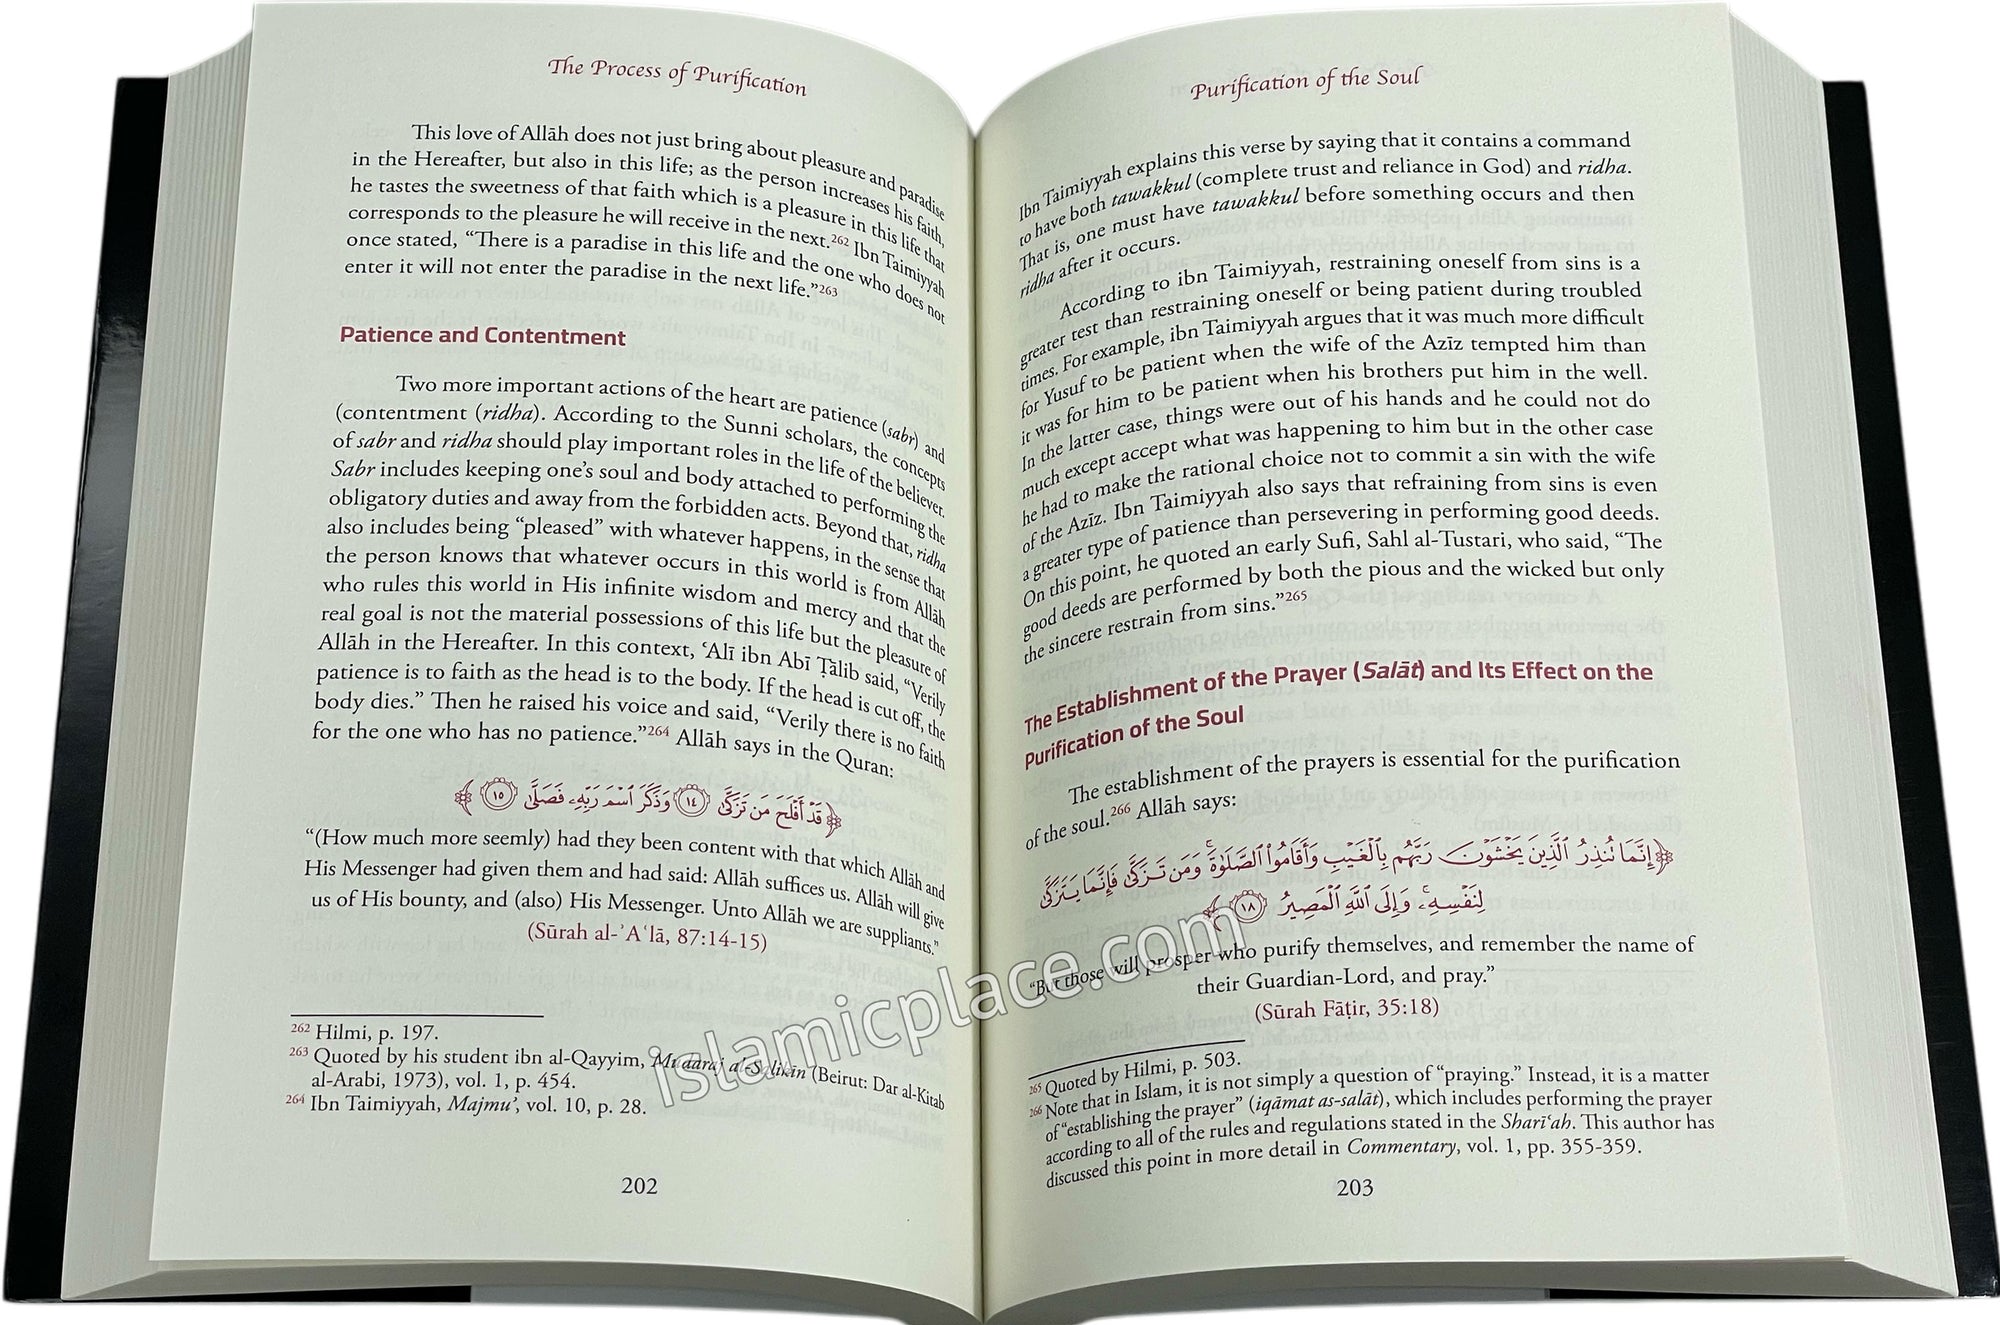 The Process of Purification
This love of Allāh does not just bring about pleasure and paradise
in the Hereafter, but also in this life; as the person increases his faith,
he tastes the sweetness of that faith which is a pleasure in this life that
corresponds to the pleasure he will receive in the next.262 Ibn Taimiyyah
once stated, “There is a paradise in this life and the one who does not
enter it will not enter the paradise in the next life.”263
Patience and Contentment
Two more important actions of the heart are patience (sabr) and
(contentment (ridha). According to the Sunni scholars, the concepts
of sabr and ridha should play important roles in the life of the believer.
Sabr includes keeping one’s soul and body attached to performing the
obligatory duties and away from the forbidden acts. Beyond that, ridha
also includes being “pleased” with whatever happens, in the sense that
the person knows that whatever occurs in this world is from Allāh
who rules this world in His infinite wisdom and mercy and that the
real goal is not the material possessions of this life but the pleasure of
Allāh in the Hereafter. In this context, ‘Alī ibn Abī Ṭālib said, “Verily
patience is to faith as the head is to the body. If the head is cut off, the
body dies.” Then he raised his voice and said, “Verily there is no faith
for the one who has no patience.”264 Allāh says in the Quran:
﴿قَدْ أَفْلَحَ مَن تَزَكَّىٰ ١٤ وَذَكَرَ ٱسْمَ رَبِّهِۦ فَصَلَّىٰ ١٥﴾
“(How much more seemly) had they been content with that which Allāh and
His Messenger had given them and had said: Allāh suffices us. Allāh will give
us of His bounty, and (also) His Messenger. Unto Allāh we are suppliants.”
(Sūrah al-ʾAʿlā, 87:14-15)
262 Hilmi, p. 197.
263 Quoted by his student ibn al-Qayyim, Mudaraj al-Salikīn (Beirut: Dar al-Kitab
al-Arabi, 1973), vol. 1, p. 454.
264 Ibn Taimiyyah, Majmu’, vol. 10, p. 28.
202
Purification of the Soul
Ibn Taimiyyah explains this verse by saying that it contains a command
to have both tawakkul (complete trust and reliance in God) and ridha.
That is, one must have tawakkul before something occurs and then
ridha after it occurs.
According to ibn Taimiyyah, restraining oneself from sins is a
greater test than restraining oneself or being patient during troubled
times. For example, ibn Taimiyyah argues that it was much more difficult
for Yusuf to be patient when the wife of the Azīz tempted him than
it was for him to be patient when his brothers put him in the well.
In the latter case, things were out of his hands and he could not do
much except accept what was happening to him but in the other case
he had to make the rational choice not to commit a sin with the wife
of the Azīz. Ibn Taimiyyah also says that refraining from sins is even
a greater type of patience than persevering in performing good deeds.
On this point, he quoted an early Sufi, Sahl al-Tustari, who said, “The
good deeds are performed by both the pious and the wicked but only
the sincere restrain from sins.”265
The Establishment of the Prayer (Salāt) and Its Effect on the
Purification of the Soul
The establishment of the prayers is essential for the purification
of the soul.266 Allāh says:
﴿إِنَّمَا تُنذِرُ ٱلَّذِينَ يَخْشَوْنَ رَبَّهُم بِٱلْغَيْبِ وَأَقَامُوا۟ ٱلصَّلَوٰةَ ۚ وَمَن تَزَكَّىٰ فَإِنَّمَا يَتَزَكَّىٰ
لِنَفْسِهِۦ ۚ وَإِلَى ٱللَّهِ ٱلْمَصِيرُ ١٨﴾
“But those will prosper who purify themselves, and remember the name of
their Guardian-Lord, and pray.”
(Sūrah Fāṭir, 35:18)
265 Quoted by Hilmi, p. 503.
266 Note that in Islam, it is not simply a question of “praying.” Instead, it is a matter
of “establishing the prayer” (iqāmat as-salāt), which includes performing the prayer
according to all of the rules and regulations stated in the Sharī‘ah. This author has
discussed this point in more detail in Commentary, vol. 1, pp. 355-359.
203
islamicplace.com